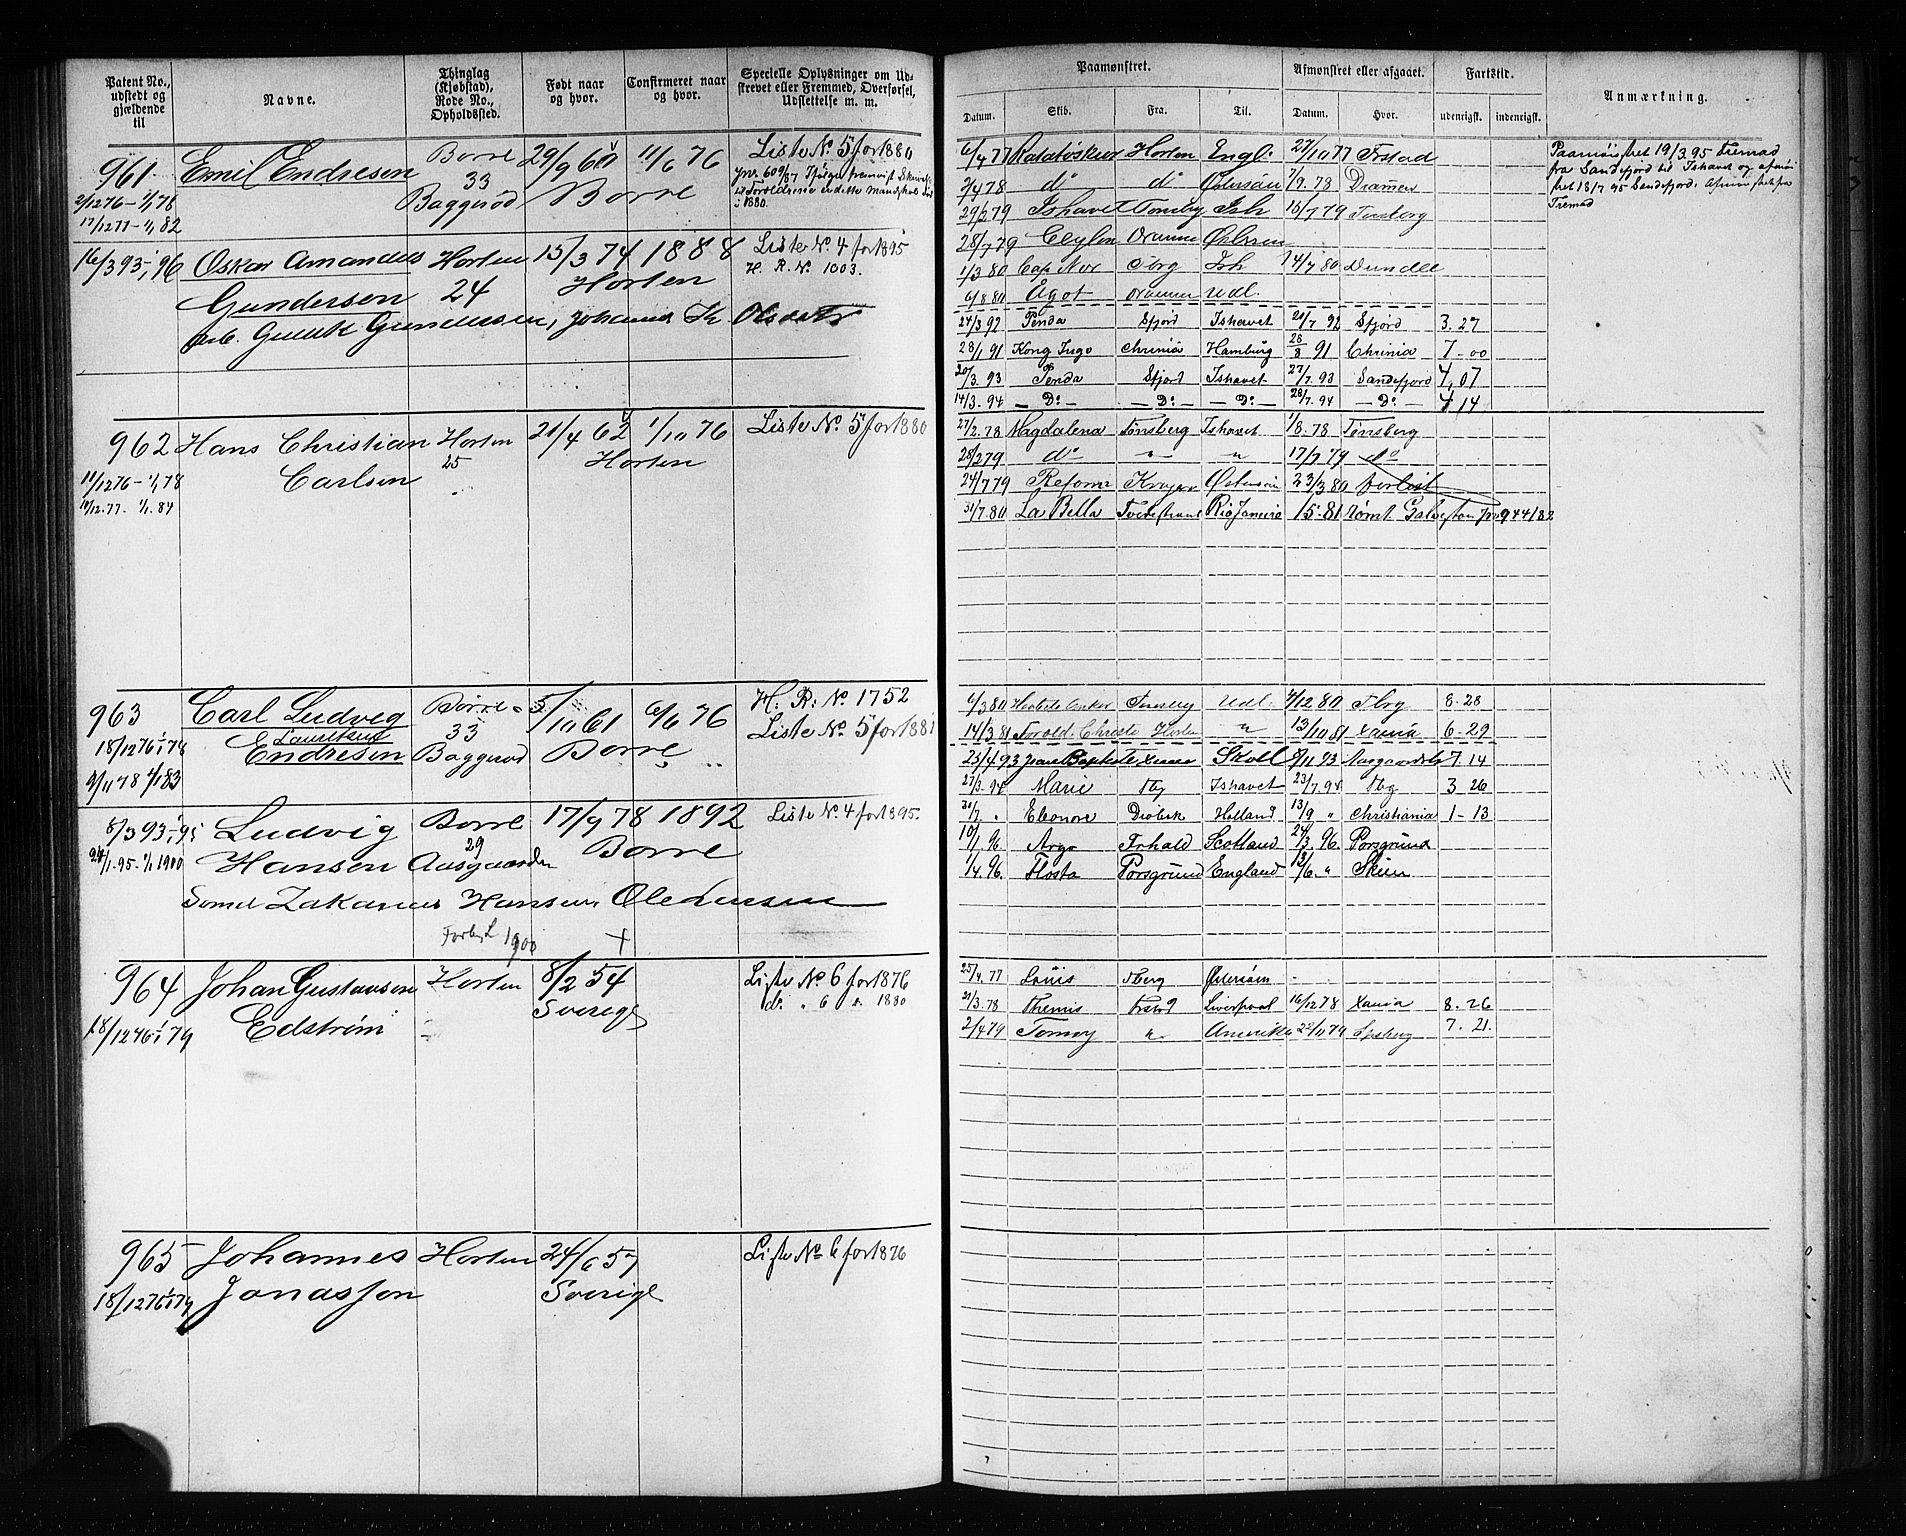 Patent No., udstedt og gjældende til
Navne.
Thinglag (Kjøbstad), Rode No., Opholdssted.
Født naar og hvor.
Confirmeret naar og hvor.
Specielle Oplysninger om Udskrevet eller Fremmed, Overførsel, Udslettelse m. m.
961 Emil Endresen Borre 29/9 60 11/6 76 Liste No 5 for 1880
33
2/1276 – 1/1 78 Baggerød Borre
17/1277 – 1/1 82
16/3 93 – 1/1 96 Oskar Amandus Horten 15/3 74 1888 Liste No. 4 for 1895
H. R. No. 1003.
Gundersen 24 Horten
962 Hans Christian Horten 21/4 62 1/10 76 Liste No. 5 for 1880
25 Horten
11/1276 – 1/1 78 Carlsen
11/12.77. – 1/1. 84
963 Carl Ludvig Borre 5/11 61 6/6 76 H. R. No 1752
33 Liste No 5 for 1881
Lauritius
18/1276 1/1 78 Endresen Baggerød Borre
9/11 78 1/1 83
8/3 93 1/1 95 Ludvig Borre 17/9 78 1892 Liste No. 4 for 1895.
29
24/1.95 – 1/1 1900 Hansen Aasgaarden Borre
Hansen
1900
+
964 Johan Gustavsen Horten 8/2 54 Liste No 6 for 1876
do. " 6 " 1880
18/1276 – 1/1 79 Edstrøm Sverige
965 Johannes Horten 24/6 57 Liste No 6 for 1876
18/1276 1/1 79 Jonasson Sverige
Paamønstret.
Afmønstret eller afgaaet.
Fartstid.
Anmærkning.
Datum. Skib. Fra. Til. Datum. Hvor. udenrigsk. indenrigsk.
6/4 77 Horten Engl. 27/10 77 Frstad
2/4 78 do do Østersøen 7/9. 78 Drammen
29/2 79 Ishavet Tønsberg Ish 15/7 79 Tønsberg
28/7 79 Ceylon
1/3 80 Cap Nor Tbrg Ish 14/7 80 Dundee
6/8 80 Agot Udl.
24/3 92 Penda Sfjord Ishavet 20/7 92 Sfjord 3. 27
28/1 91 Kong Inge Chrinia Hamburg 28/8 91 Chrinia 7 – 00
20/3. 93 Penda Sfjord Ishavet 27/7. 93 Sandefjord 4. 07
14/3. 94 – Do – – Do – – Do – 28/7. 94 – Do – 4 14
Paamønstret 19/3. 95 Fremad
fra Sandefjord til Ishavet og afmøn
stret 18/7 95 Sandefjord.
Fremad
27/2. 78 Magdalena Tønsberg Ishavet 1/8. 78 Tønsberg
28/2 79 do " " 17/7 79 do
24/7 79 Reform Kragerø Østersøen 23/3 80 forlist
31/7. 80 La Bella Tvedestrand Rio Janeiro 15. 81 rømt Galveston 944/82
6/3 80 Tønsberg Udl. 4/12 80 Tbrg 8. 28
14/3 81 Horten " 13/10 81 Xania 6 – 29
25/4. 93 Jean Baptiste Skotl 8/11 93 7. 14
27/3. 94 Marie Tbg Ishavet 23/7. 94 Tbg 3 26
30/7. " Eleonore Drøbak Holland 13/9 " Christiania 1 – 13
10/1. 96 Argo Frhald Scotland 24/3. 96 Porsgrund
1/4. 96. Flosta Porsgrund England 13/6. " Skien
25/4. 77 Louis Tberg Østersøen –
21/3. 78 Themis Frstad Liverpool 16/12 78 Xania 8. 26
2/4 79 " Amerika 7. 21.